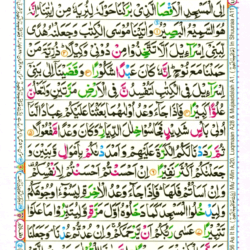 اِلَى الْمَسْجِدِ الْاَقْصَا الَّذِيْ بٰرَكْنَا حَوْلَهٗ لِنُرِيَهٗ مِنْ اٰيٰتِنَا ؕ اِنَّهٗ
هُوَ السَّمِيْعُ الْبَصِيْرُ وَاٰتَيْنَا مُوْسَى الْكِتٰبَ وَجَعَلْنٰهُ هُدًى
لِّبَنِيْٓ اِسْرَآءِيْلَ اَلَّا تَتَّخِذُوْا مِنْ دُوْنِيْ وَكِيْلًا ذُرِّيَّةَ مَنْ
حَمَلْنَا مَعَ نُوْحٍ ؕ اِنَّهٗ كَانَ عَبْدًا شَكُوْرًا وَقَضَيْنَآ اِلٰى بَنِيْٓ
اِسْرَآءِيْلَ فِي الْكِتٰبِ لَتُفْسِدُنَّ فِي الْاَرْضِ مَرَّتَيْنِ وَلَتَعْلُنَّ عُلُوًّا
كَبِيْرًا فَاِذَا جَآءَ وَعْدُ اُوْلٰىهُمَا بَعَثْنَا عَلَيْكُمْ عِبَادًا لَّنَآ
اُولِيْ بَاْسٍ شَدِيْدٍ فَجَاسُوْا خِلٰلَ الدِّيَارِ ؕ وَكَانَ وَعْدًا مَّفْعُوْلًا
ثُمَّ رَدَدْنَا لَكُمُ الْكَرَّةَ عَلَيْهِمْ وَاَمْدَدْنٰكُمْ بِاَمْوَالٍ وَّبَنِيْنَ وَ
جَعَلْنٰكُمْ اَكْثَرَ نَفِيْرًا اِنْ اَحْسَنْتُمْ اَحْسَنْتُمْ لِاَنْفُسِكُمْ
وَاِنْ اَسَاْتُمْ فَلَهَا ؕ فَاِذَا جَآءَ وَعْدُ الْاٰخِرَةِ لِيَسُوْٓءٗا وُجُوْهَكُمْ
وَلِيَدْخُلُوا الْمَسْجِدَ كَمَا دَخَلُوْهُ اَوَّلَ مَرَّةٍ وَّلِيُتَبِّرُوْا مَا عَلَوْا